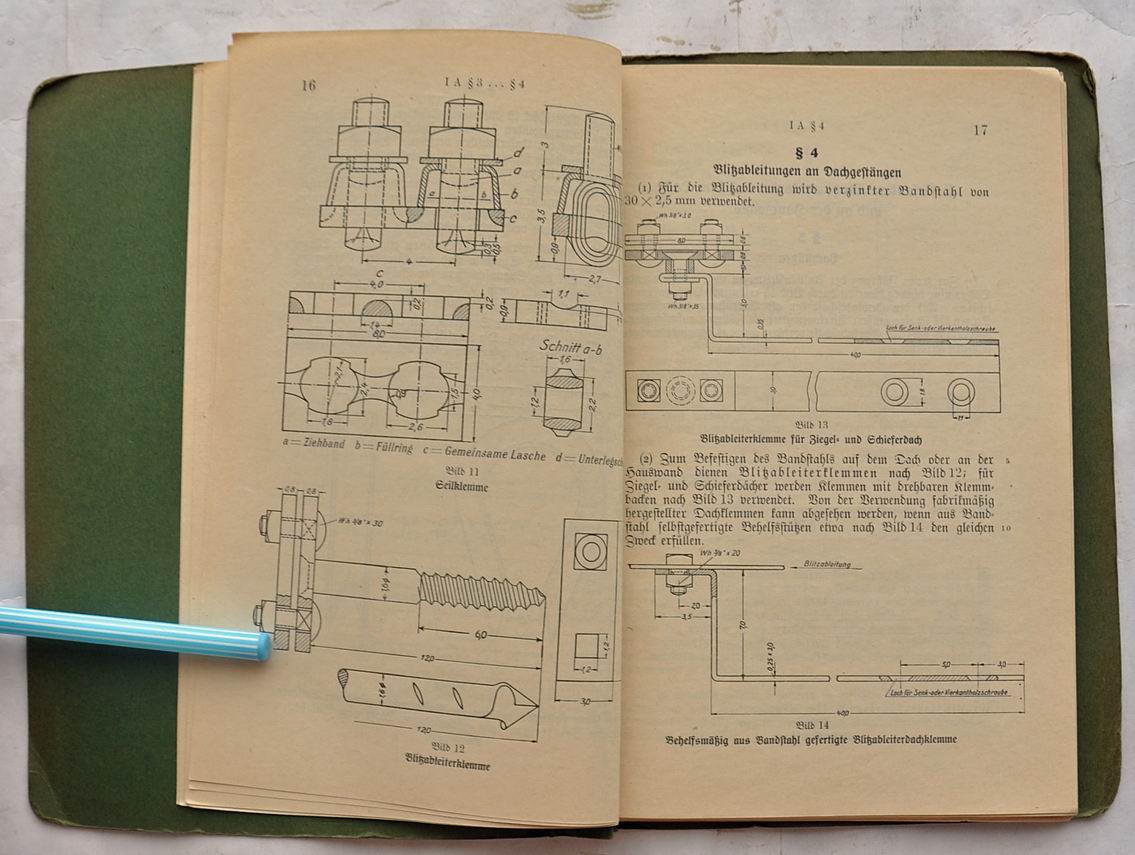 16
I A § 3 ... § 4
d
a
b
c
a
b
3
3,5
0,9
2,7
0,3
0,5
4
c
4,0
0,2
0,2
1,4
8,0
1,1
0,9
Schnitt a-b
1,6
1,2
2,2
2,1
2,4
0,9
1,5
4,0
1,8
2,6
a = Ziehband b = Füllring c = Gemeinsame Lasche d = Unterlegsch
Bild 11
Seilklemme
0,8 0,8
Wh 3/8" × 30
1,6 ϕ
6,0
12,0
1,2
1,2
1,6 ϕ
12,0
3,0
Bild 12
Blitzableiterklemme
I A § 4
17
§ 4
Blitzableitungen an Dachgestängen
(1) Für die Blitzableitung wird verzinkter Bandstahl von
30 × 2,5 mm verwendet.
8,0
Wh 3/8" × 35
Loch für Senk- oder Vierkantholzschraube
40,0
Bild 13
Blitzableiterklemme für Ziegel- und Schieferdach
(2) Zum Befestigen des Bandstahls auf dem Dach oder an der 5
Hauswand dienen Blitzableiterklemmen nach Bild 12; für
Ziegel- und Schieferdächer werden Klemmen mit drehbaren Klemm-
backen nach Bild 13 verwendet. Von der Verwendung fabrikmäßig
hergestellter Dachklemmen kann abgesehen werden, wenn aus Band-
stahl selbstgefertigte Behelfsstützen etwa nach Bild 14 den gleichen 10
Zweck erfüllen.
Wh 3/8" × 20
Blitzableitung
2,0
3,5
7,0
0,25 × 3,0
5,0
3,0
Loch für Senk- oder Vierkantholzschraube
40,0
Bild 14
Behelfsmäßig aus Bandstahl gefertigte Blitzableiterdachklemme